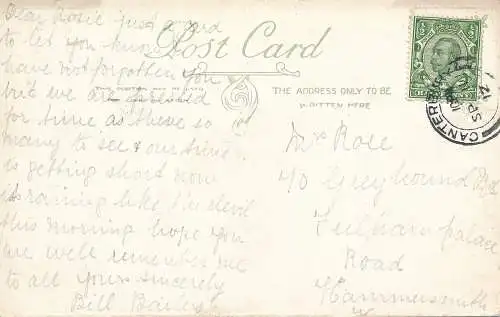 Dear Rosie just a card
to let you know I
have not forgotten you
but we are
for time as there so
many to see & our time
is getting short now
its raining like the devil
this morning hope you
are well remember me
to all yours sincerely
Bill Bailey
Post Card
THE ADDRESS ONLY TO BE
WRITTEN HERE
CANTERBURY
Mr Rose
40 Greyhound Rd
Fulham palace
Road
Hammersmith